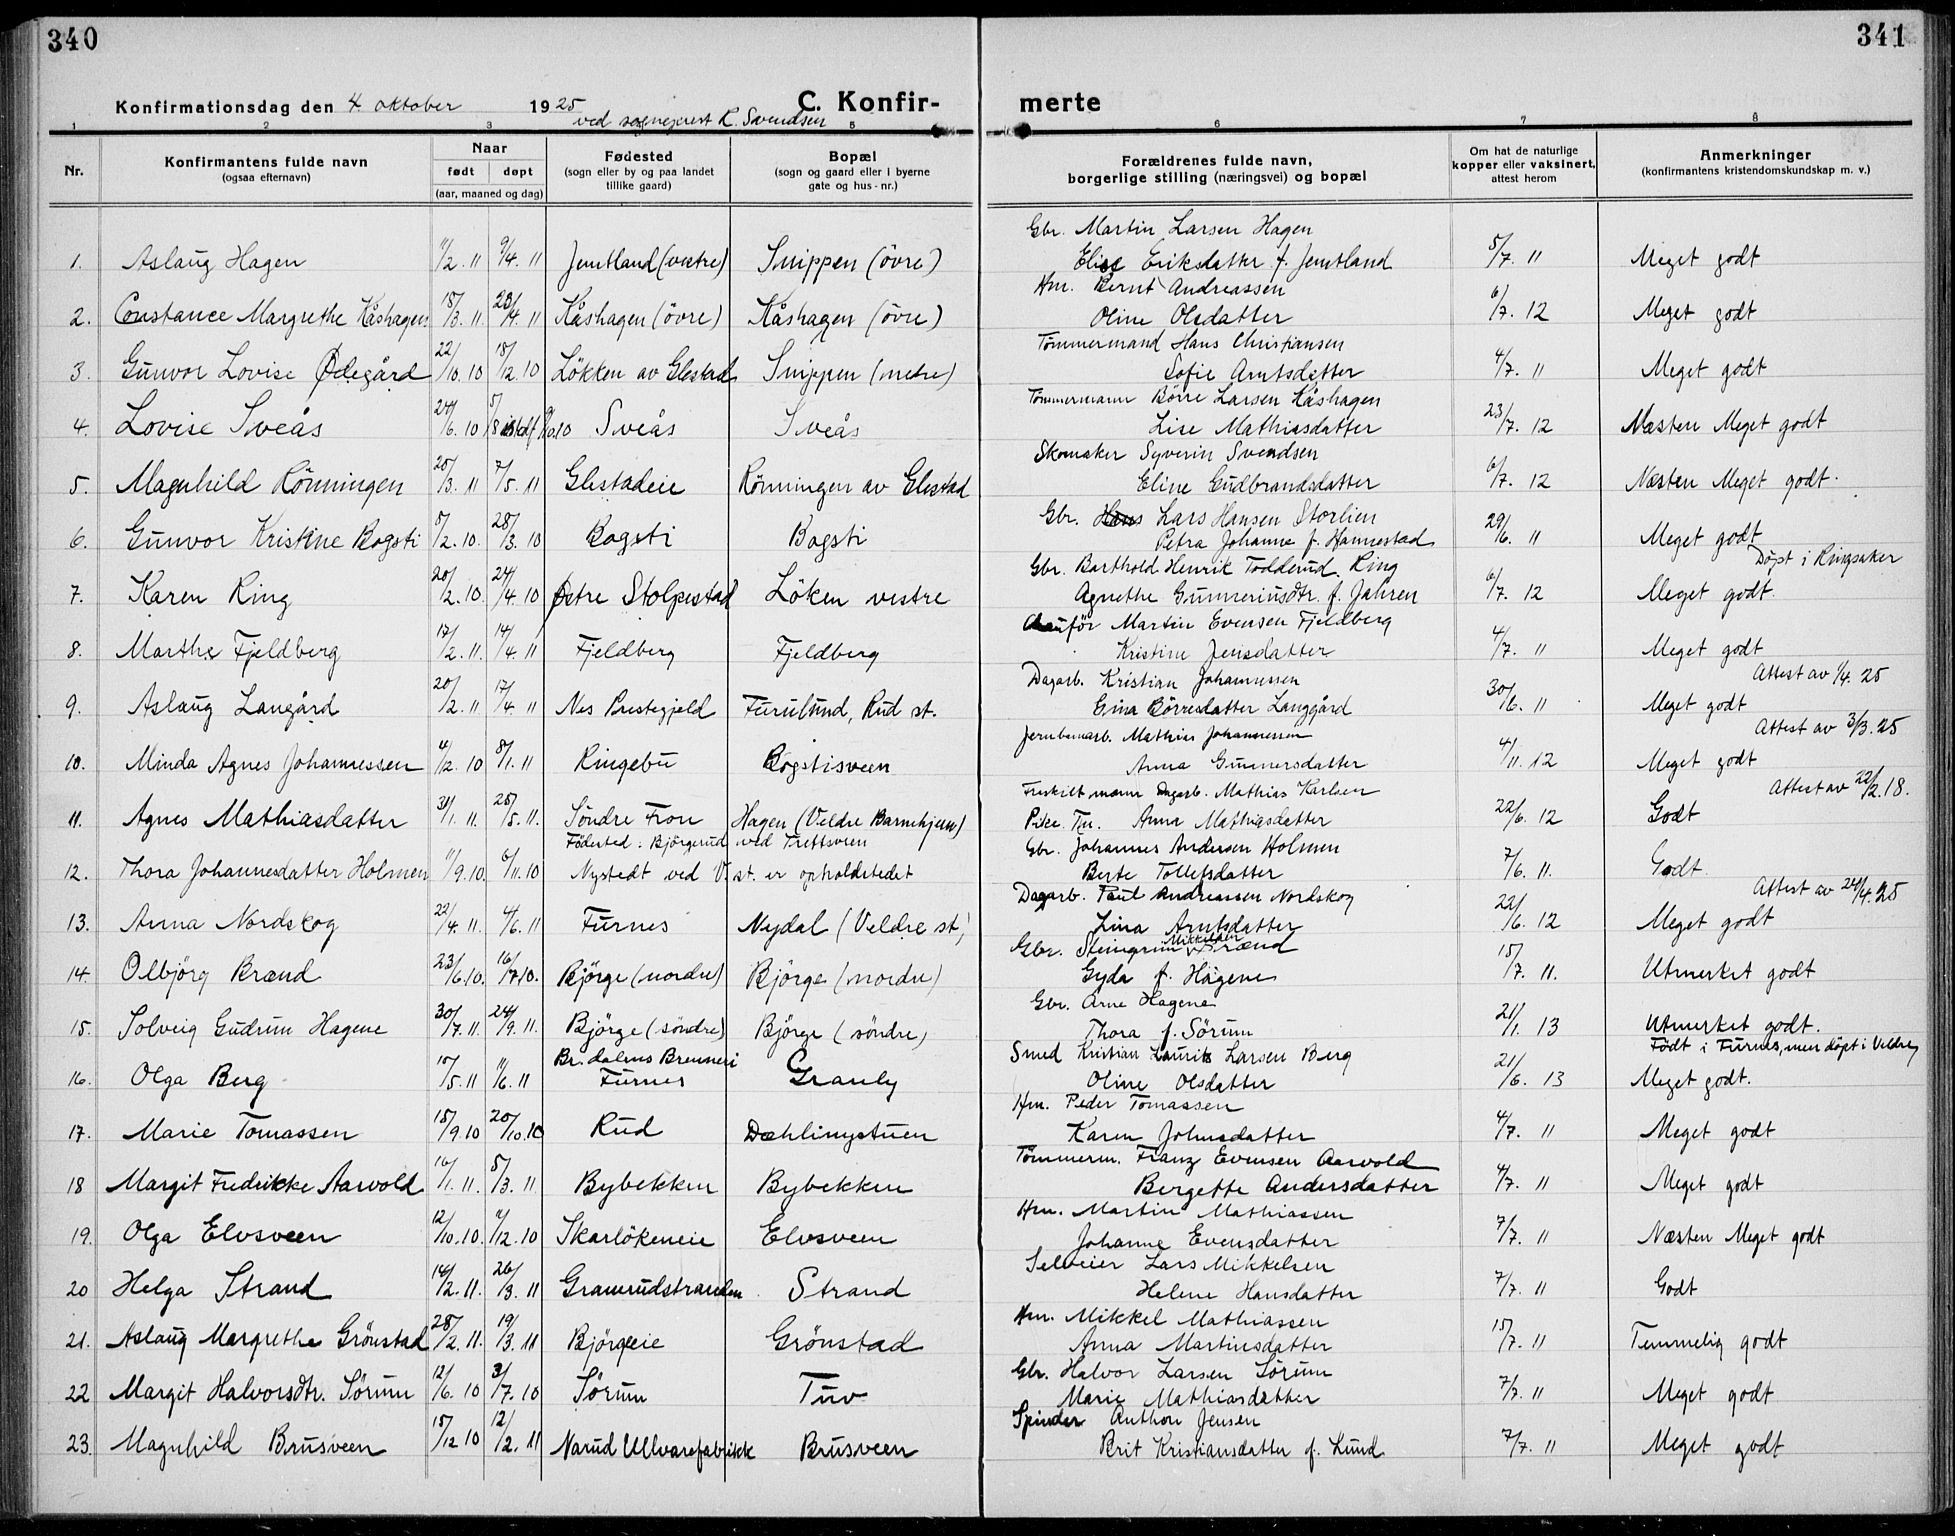 340
341
Konfirmationsdag den 4 oktober 1925
C. Konfirmerte
ved sogneprest K. Svendsen
1 2 3 5 6 7 8
Nr.
Konfirmantens fulde navn
(ogsaa efternavn)
Naar
født døpt
(aar, maaned og dag)
Fødested
(sogn eller by og paa landet
tillike gaard)
Bopæl
(sogn og gaard eller i byerne
gate og hus-nr.)
Forældrenes fulde navn,
borgerlige stilling (næringsvei) og bopæl
Om hat de naturlige
kopper eller vaksinert,
attest herom
Anmerkninger
(konfirmantens kristendomskundskap m. v.)
Gbr. Martin Larsen Hagen
1. Aslaug Hagen 11/2. 11 9/4. 11 Jemtland (vestre) Snippen (övre) Elise Eriksdatter f. Jemtland 5/7. 11 Meget godt
Hm. Bernt Andreassen
2. Constance Margrethe Kåshagen 18/3. 11 23/4. 11 Kåshagen (övre) Kåshagen (övre) Oline Olsdatter 6/7. 12 Meget godt
Tömmermand Hans Christiansen
3. Gunvor Lovise Ødegård 22/10. 10 18/12. 10 Lökken av Glestad Snippen (nedre) Sofie Arntsdatter 4/7. 11 Meget godt
Tömmermann Börre Larsen Kåshagen
4. Lovise Sveås 24/6. 10 Sveås Sveås Lise Mathiasdatter 23/7. 12 Næsten Meget godt
Skomaker Syverin Svendsen
5. Magnhild Rönningen 25/3. 11 7/5. 11 Glestadeie Rönningen av Glestad Eline Gudbrandsdatter 6/7. 12 Næsten Meget godt.
Gbr. Hans Lars Hansen Storlien
6. Gunvor Kristine Bogsti 5/2. 10. 28/3. 10 Bogsti Bogsti Petra Johanne f. Hannestad 29/6. 11 Meget godt
Gbr. Barthold Henrik Todderud Ring Döpt i Ringsaker
7. Karen Ring 20/2. 10. 24/4. 10 Østre Stolpestad Löken vestre Agnethe Gunneriusdtr. f. Jahren 6/7. 12 Meget godt
Chauför Martin Evensen Fjeldberg
8. Marthe Fjeldberg 17/2. 11. 14/4. 11 Fjeldberg Fjeldberg Kristine Jensdatter 4/7. 11 Meget godt
Dagarb. Kristian Johannessen Attest av 1/4. 25
9. Aslaug Langård 20/2. 11 17/4. 11 Nes Prestegjeld Furulund, Rud st. Gina Börresdatter Langgård 30/6. 11 Meget godt
Jernbanearb. Mathias Johannessen Attest av 3/3. 25
10. Minda Agnes Johannessen 4/12. 10 8/1. 11 Ringebu Bogstisveen Anna Gunnersdatter 4/11. 12 Meget godt
Fraskilt mann Dagarb. Mathias Karlsen Attest av 22/2. 18.
11. Agnes Mathiasdatter 31/1. 11. 25/5. 11. Söndre Fron Hagen (Veldre Barnehjem) Pike. Tj. Anna Mathiasdatter 22/6. 12 Godt
Födested: Björgerud ved Trettsveen Gbr. Johannes Andersen Holmen
12. Thora Johannesdatter Holmen 11/9. 10. 6/11. 10 Nystedt ved V. st. er opholdstedet Berte Tollefsdatter 7/6. 11. Godt
Dagarb. Paul Andreassen Nordskog Attest av 24/4. 25
13. Anna Nordskog 22/4. 11. 4/6. 11 Furnes Nydal (Veldre st.) Lina Arntsdatter 22/6. 12 Meget godt
Gbr. Steingrim Mikkelsen Brænd
14. Olbjörg Brænd 23/6. 10. 16/7 10. Björge (nordre) Björge (nordre) Gyda f. Hagene 15/7. 11. Utmerket godt
Gbr. Arne Hagene
15. Solveig Gudrun Hagene 30/7. 11. 24/9. 11. Björge (söndre) Björge (söndre) Thora f. Sörum 21/1. 13 Utmerket godt.
Br.dalens Brenneri Smed Kristian Laurits Larsen Berg Födt i Furnes, men döpt i Veldre
16. Olga Berg 15/5. 11 11/6. 11 Furnes Granly Oline Olsdatter 21/6. 13 Meget godt.
Hm. Peder Tomassen
17. Marie Tomassen 15/9. 10 20/10. 10 Rud Dæhlingstuen Karen Johnsdatter 4/7. 11 Meget godt
Tömmerm. Franz Evensen Aarvold
18 Margit Fredrikke Aarvold 16/1. 11. 5/3. 11. Bybekken Bybekken Bergette Andersdatter 4/7. 11 Meget godt
Hm. Martin Mathiassen
19. Olga Elvsveen 12/10. 10. 11/12. 10 Skarlökeneie Elvsveen Johanne Evensdatter 7/7. 11 Næsten Meget godt
Selveier Lars Mikkelsen
20 Helga Strand 14/2. 11. 26/3. 11 Gramrudstranden Strand Helene Hansdatter 7/7. 11 Godt
Hm. Mikkel Mathiassen
21. Aslaug Margrethe Grönstad 28/2. 11. 19/3. 11 Björgeeie Grönstad Anna Martinsdatter 15/7. 11 Temmelig godt
Gbr. Halvor Larsen Sörum
22 Margit Halvorsdtr. Sörum 12/6. 10 3/7. 10 Sörum Tuv Marie Mathiasdatter 7/7. 11 Meget godt
Spinder Anthon Jensen
23. Magnhild Brusveen 15/12 10 12/2. 11 Narud Ullvarefabrikk Brusveen Brit Kristiansdatter f. Lund 7/7. 11 Meget godt